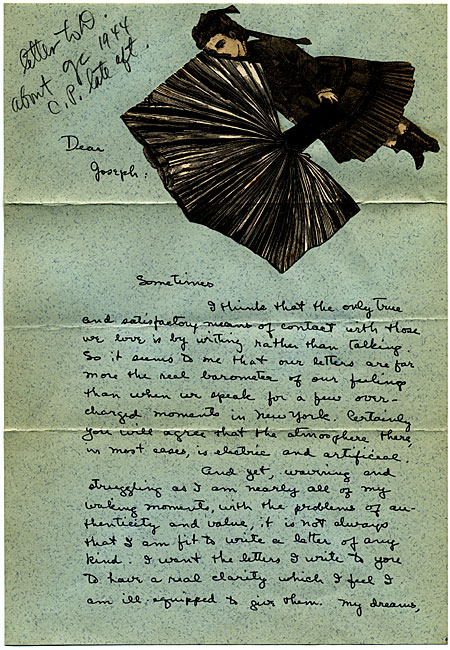 letter to D.
about gc 1944
C.P. late aft.
Dear
Joseph:
Sometimes
I think that the only true
and satisfactory means of contact with those
we love is by writing rather than talking.
So it seems to me that our letters are far
more the real barometer of our feelings
than when we speak for a few over-
charged moments in New York. Certainly
you will agree that the atmosphere there,
in most cases, is electric and artificial.
And yet, warring and
struggling as I am nearly all of my
waking moments, with the problems of au-
thenticity and value, it is not always
that I am fit to write a letter of any
kind. I want the letters I write to you
to have a real clarity which I feel I
am ill-equipped to give them. My dreams,